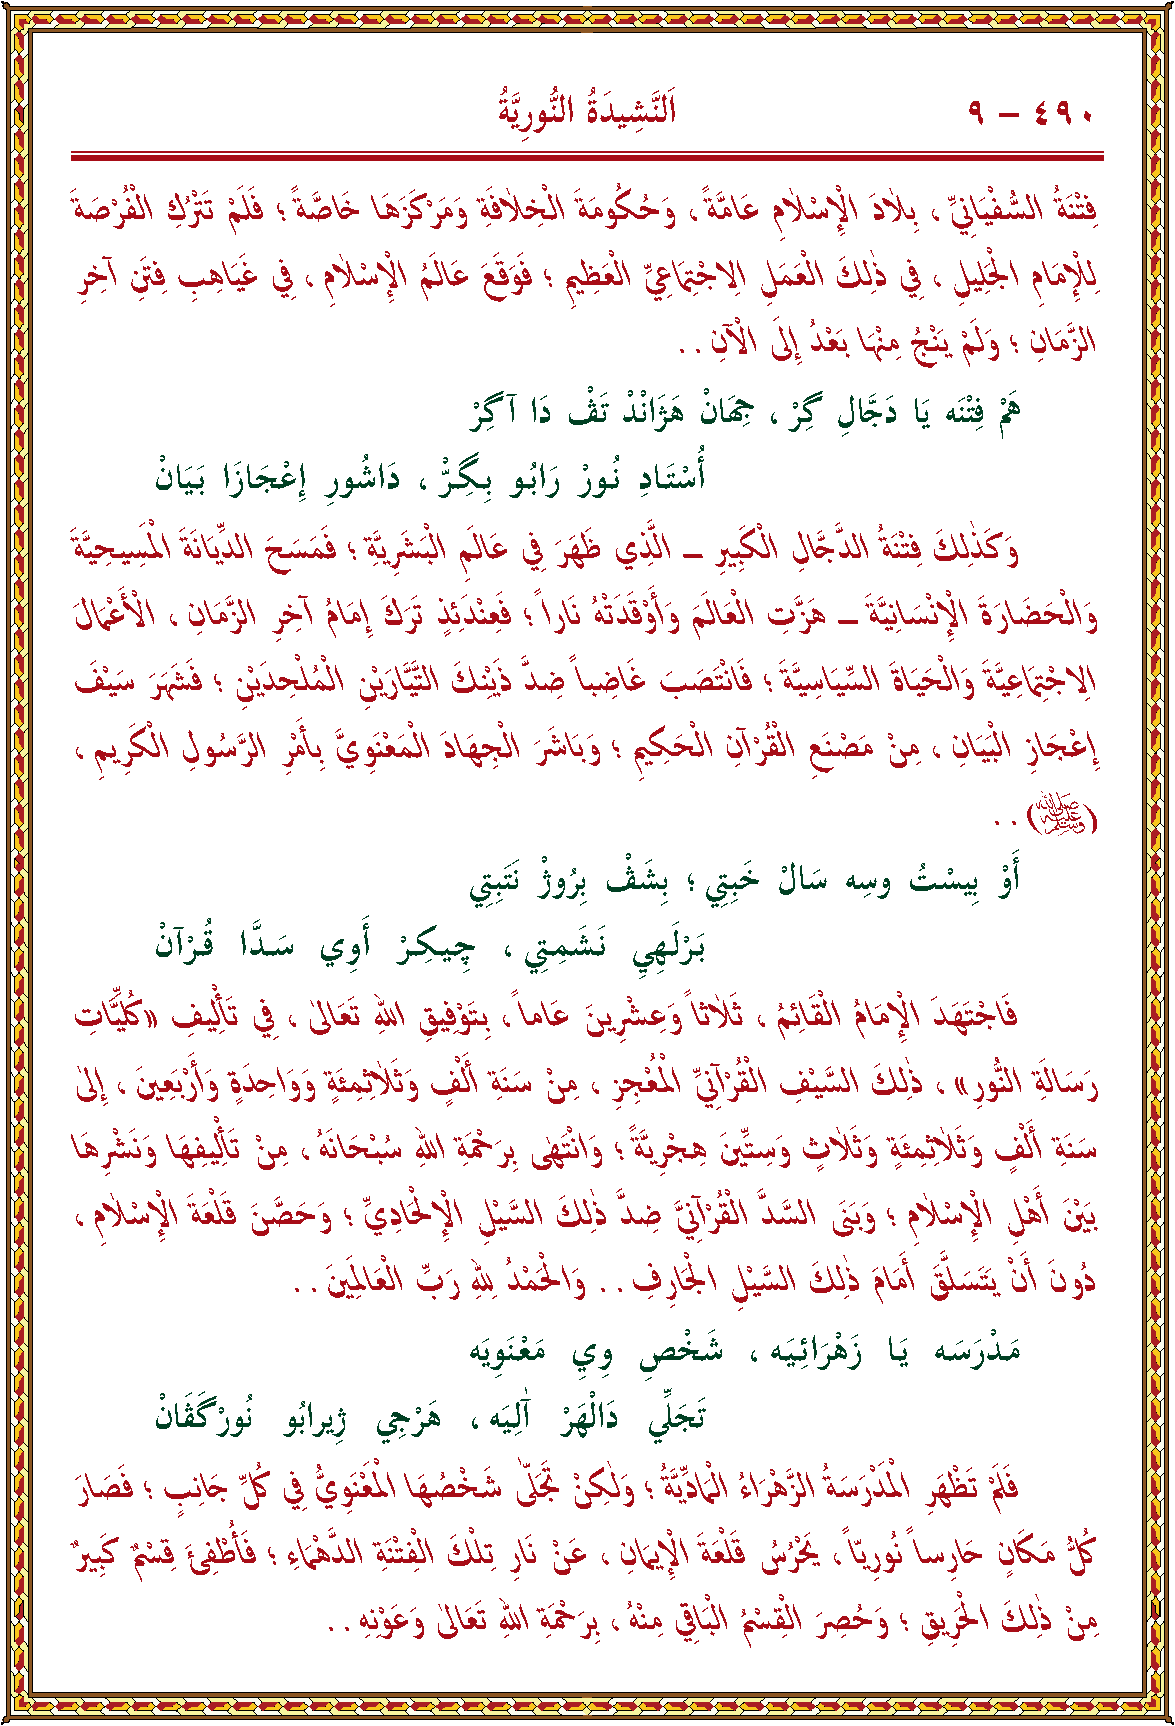 ٤٩٠ – ٩ اَلنَّشِيدَةُ النُّورِيَّةُ
فِتْنَةُ السُّفْيَانِيِّ ، بِلَادَ الْإِسْلَامِ عَامَّةً ، وَحُكُومَةَ الْخِلَافَةِ وَمَرْكَزَهَا خَاصَّةً ؛ فَلَمْ تَتْرُكِ الْفُرْصَةَ
لِلْإِمَامِ الْجَلِيلِ ، فِي ذٰلِكَ الْعَمَلِ الِاجْتِمَاعِيِّ الْعَظِيمِ ؛ فَوَقَعَ عَالَمُ الْإِسْلَامِ ، فِي غَيَاهِبِ فِتَنِ آخِرِ
الزَّمَانِ ؛ وَلَمْ يَنْجُ مِنْهَا بَعْدُ إِلَى الْآنِ . .
هَمْ فِتْنَه يَا دَجَّالِ گِرْ ، جِهَانْ هَژَانْدْ تَڤْ دَا آگِرْ
أُسْتَادِ نُورْ رَابُو بِگِرْ ، دَاشُورِ إِعْجَازَا بَيَانْ
وَكَذٰلِكَ فِتْنَةُ الدَّجَّالِ الْكَبِيرِ – الَّذِي ظَهَرَ فِي عَالَمِ الْبَشَرِيَّةِ ؛ فَمَسَحَ الدِّيَانَةَ الْمَسِيحِيَّةَ
وَالْحَضَارَةَ الْإِنْسَانِيَّةَ – هَزَّتِ الْعَالَمَ وَأَوْقَدَتْهُ نَاراً ؛ فَعِنْدَئِذٍ تَرَكَ إِمَامُ آخِرِ الزَّمَانِ ، الْأَعْمَالَ
الِاجْتِمَاعِيَّةَ وَالْحَيَاةَ السِّيَاسِيَّةَ ؛ فَانْتَصَبَ غَاضِباً ضِدَّ ذَيْنِكَ التَّيَّارَيْنِ الْمُلْحِدَيْنِ ؛ فَشَهَرَ سَيْفَ
إِعْجَازِ الْبَيَانِ ، مِنْ مَصْنَعِ الْقُرْآنِ الْحَكِيمِ ؛ وَبَاشَرَ الْجِهَادَ الْمَعْنَوِيَّ بِأَمْرِ الرَّسُولِ الْكَرِيمِ ،
(ﷺ) . .
أَوْ بِيسْتُ وسِه سَالْ خَبِتِي ؛ بِشَڤْ بِرُوژْ نَتَبِتِي
بَرْلَهِيِ نَشَمِتِي ، چِيكِرْ أَوِي سَدَّا قُرْآنْ
فَاجْتَهَدَ الْإِمَامُ الْقَائِمُ ، ثَلَاثاً وَعِشْرِينَ عَاماً ، بِتَوْفِيقِ اللهِ تَعَالَى ، فِي تَأْلِيفِ «كُلِّيَّاتِ
رَسَالَةِ النُّورِ» ، ذٰلِكَ السَّيْفِ الْقُرْآنِيِّ الْمُعْجِزِ ، مِنْ سَنَةِ أَلْفٍ وَثَلَاثِمِئَةٍ وَوَاحِدَةٍ وَأَرْبَعِينَ ، إِلَى
سَنَةِ أَلْفٍ وَثَلَاثِمِئَةٍ وَثَلَاثٍ وَسِتِّينَ هِجْرِيَّةً ؛ وَانْتَهَى بِرَحْمَةِ اللهِ سُبْحَانَهُ ، مِنْ تَأْلِيفِهَا وَنَشْرِهَا
بَيْنَ أَهْلِ الْإِسْلَامِ ؛ وَبَنَى السَّدَّ الْقُرْآنِيَّ ضِدَّ ذٰلِكَ السَّيْلِ الْإِلْحَادِيِّ ؛ وَحَصَّنَ قَلْعَةَ الْإِسْلَامِ ،
دُونَ أَنْ يَتَسَلَّقَ أَمَامَ ذٰلِكَ السَّيْلِ الْجَارِفِ . . وَالْحَمْدُ لِلهِ رَبِّ الْعَالَمِينَ . .
مَدْرَسَه يَا زَهْرَائِيَه ، شَخْصِ وِي مَعْنَوِيَه
تَجَلِّي دَالْهَرْ آلِيَه ، هَرْجِي ژِيرابُو نُورْگَڤَانْ
فَلَمْ تَظْهَرِ الْمَدْرَسَةُ الزَّهْرَاءُ الْمَادِّيَّةُ ؛ وَلٰكِنْ تَجَلَّى شَخْصُهَا الْمَعْنَوِيُّ فِي كُلِّ جَانِبٍ ؛ فَصَارَ
كُلُّ مَكَانٍ حَارِساً نُورِيّاً ، يَحْرُسُ قَلْعَةَ الْإِيمَانِ ، عَنْ نَارِ تِلْكَ الْفِتْنَةِ الدَّهْمَاءِ ؛ فَأُطْفِئَ قِسْمٌ كَبِيرٌ
مِنْ ذٰلِكَ الْحَرِيقِ ؛ وَحُصِرَ الْقِسْمُ الْبَاقِي مِنْهُ ، بِرَحْمَةِ اللهِ تَعَالَى وَعَوْنِهِ . .